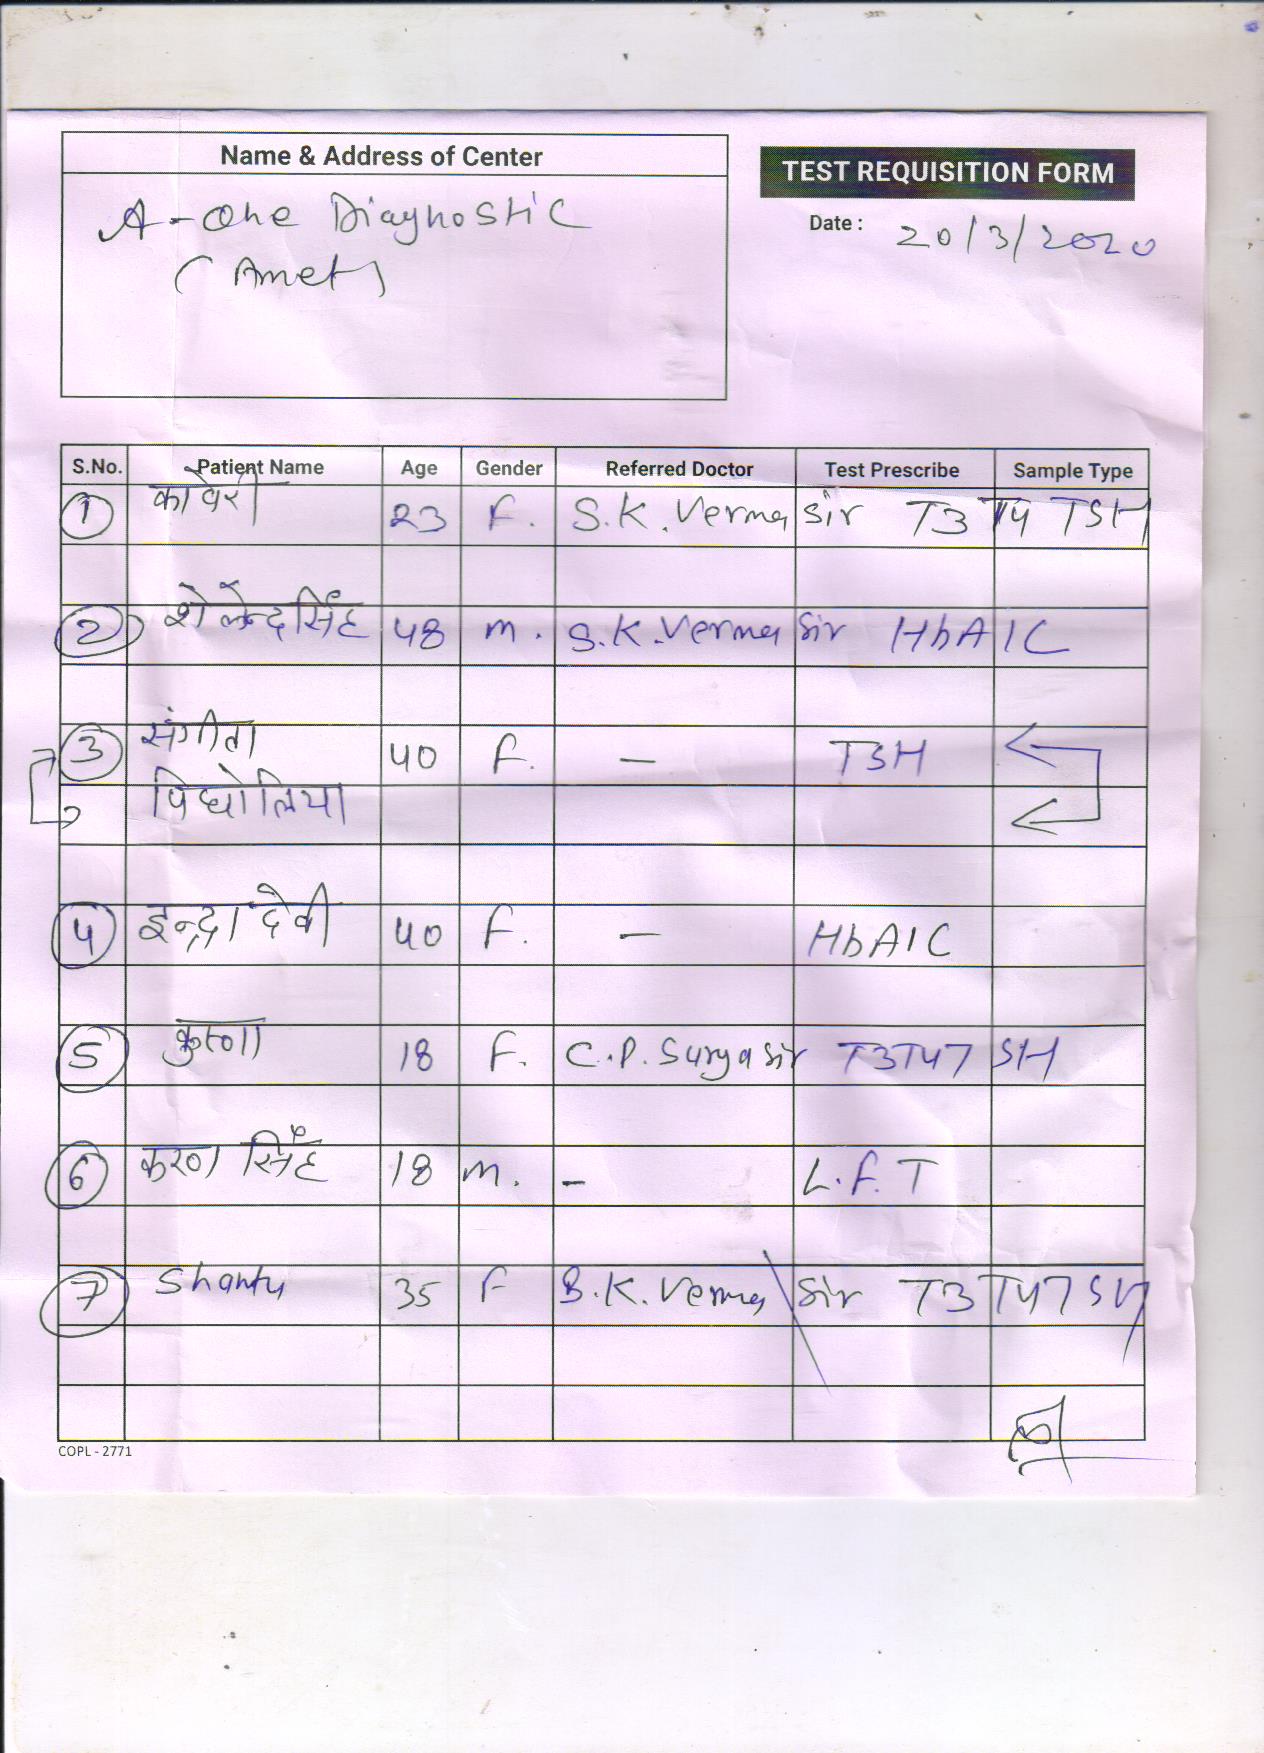 Name & Address of Center
TEST REQUISITION FORM
A-One Diagnostic
(Amet)
Date : 20/3/2020
S.No. Patient Name Age Gender Referred Doctor Test Prescribe Sample Type
1 कावेरी 23 F. S.K. Verma Sir T3 T4 TSH
2 शैलेन्द्र सिंह 48 M. S.K. Verma Sir HbA1C
3 संगीता 40 F. — TSH
पिछोलिया
4 इन्द्रा देवी 40 F. — HbA1C
5 18 F. C.P. Surya Sir T3 T4 TSH
6 करण सिंह 18 M. – L.F.T
7 Shantu 35 F S.K. Verma Sir T3 T4 TSH
COPL - 2771